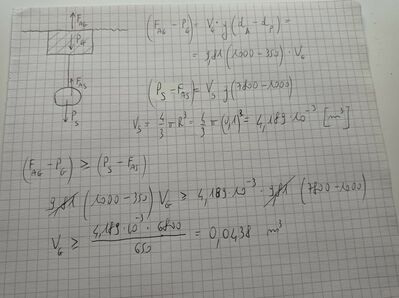 F_AG
P_G
F_AS
P_S
(F_AG - P_G) = V_G · g (d_A - d_P) =
= 9,81 (1000 - 350) · V_G
(P_S - F_AS) = V_S g (7800 - 1000)
V_S = 4/3 π R³ = 4/3 π (0,1)³ = 4,189 · 10⁻³ [m³]
(F_AG - P_G) ≥ (P_S - F_AS)
9,81 (1000 - 350) V_G ≥ 4,189 · 10⁻³ · 9,81 (7800 - 1000)
V_G ≥ 4,189 · 10⁻³ · 6800 / 650 = 0,0438 m³